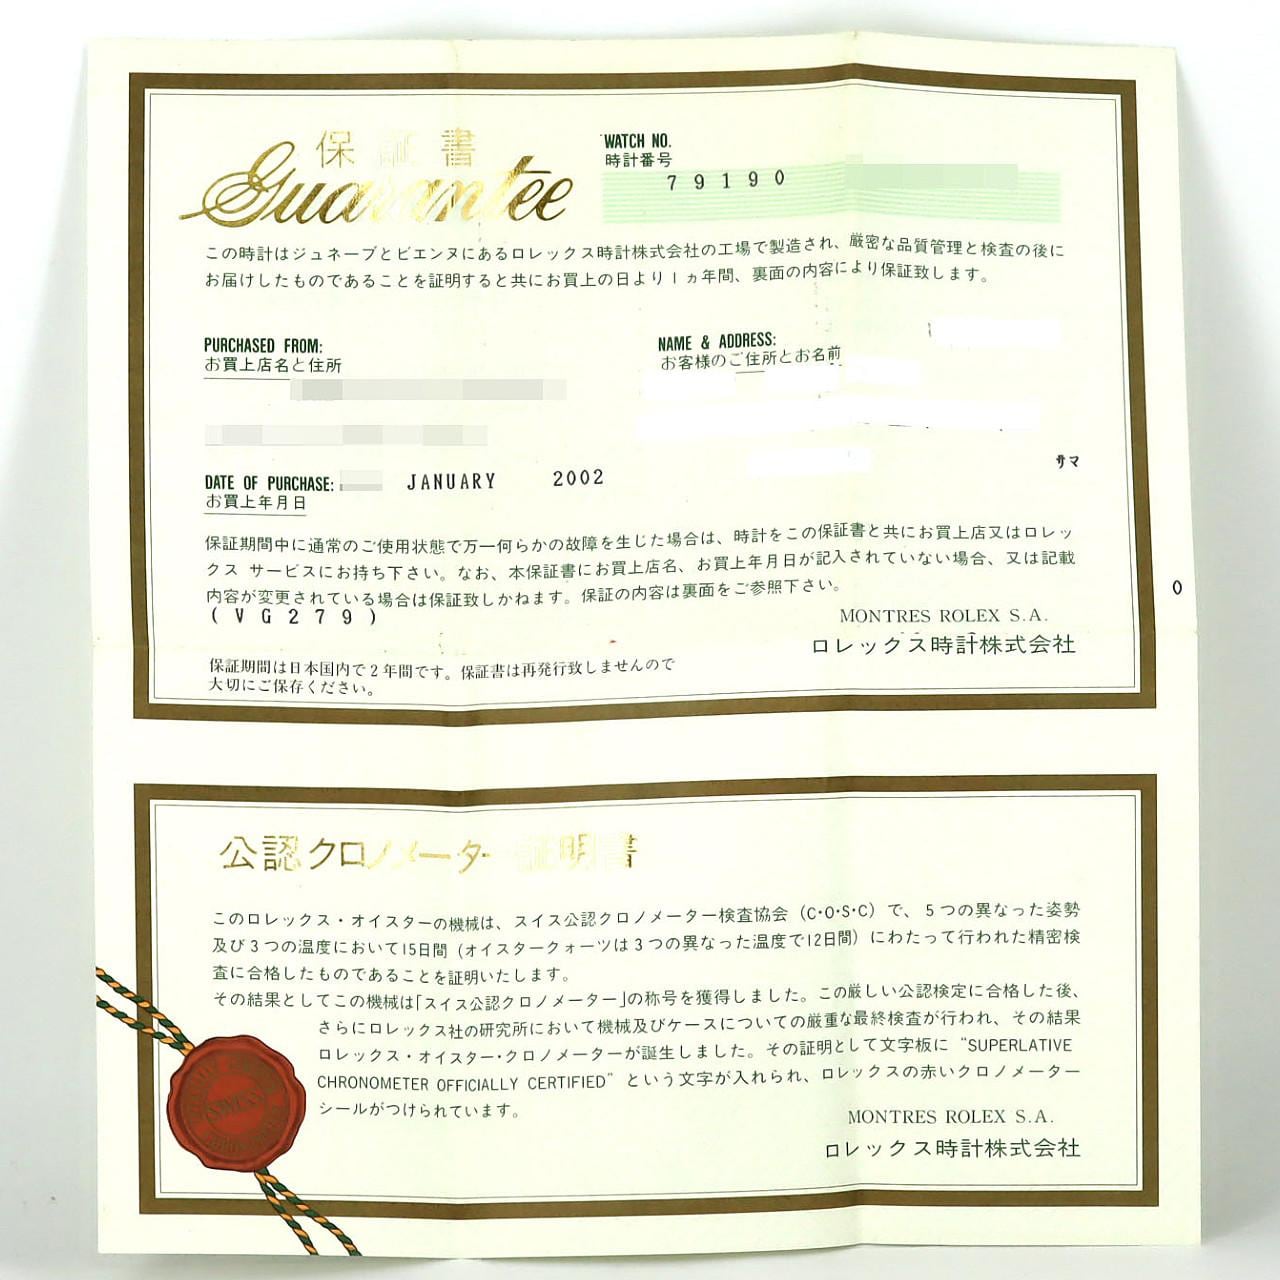 保証書
Guarantee
WATCH NO.
時計番号
79190
この時計はジュネーブとビエンヌにあるロレックス時計株式会社の工場で製造され、厳密な品質管理と検査の後に
お届けしたものであることを証明すると共にお買上の日より1ヵ年間、裏面の内容により保証致します。
PURCHASED FROM:
お買上店名と住所
NAME & ADDRESS:
お客様のご住所とお名前
サマ
DATE OF PURCHASE: JANUARY 2002
お買上年月日
保証期間中に通常のご使用状態で万一何らかの故障を生じた場合は、時計をこの保証書と共にお買上店又はロレッ
クス サービスにお持ち下さい。なお、本保証書にお買上店名、お買上年月日が記入されていない場合、又は記載
内容が変更されている場合は保証致しかねます。保証の内容は裏面をご参照下さい。
(VG279)
0
MONTRES ROLEX S.A.
ロレックス時計株式会社
保証期間は日本国内で2年間です。保証書は再発行致しませんので
大切にご保存ください。
公認クロノメーター証明書
このロレックス・オイスターの機械は、スイス公認クロノメーター検査協会（C・O・S・C）で、5つの異なった姿勢
及び3つの温度において15日間（オイスタークォーツは3つの異なった温度で12日間）にわたって行われた精密検
査に合格したものであることを証明いたします。
その結果としてこの機械は「スイス公認クロノメーター」の称号を獲得しました。この厳しい公認検定に合格した後、
さらにロレックス社の研究所において機械及びケースについての厳重な最終検査が行われ、その結果
ロレックス・オイスター・クロノメーターが誕生しました。その証明として文字板に “SUPERLATIVE
CHRONOMETER OFFICIALLY CERTIFIED” という文字が入れられ、ロレックスの赤いクロノメーター
シールがつけられています。
MONTRES ROLEX S.A.
ロレックス時計株式会社